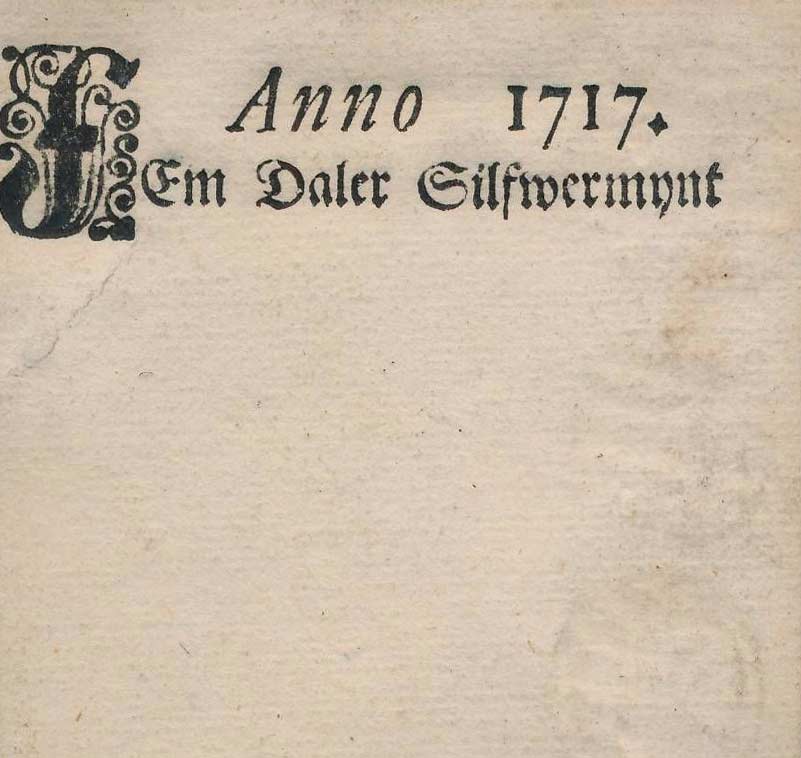 Anno 1717.
FEm Daler Silfwermynt